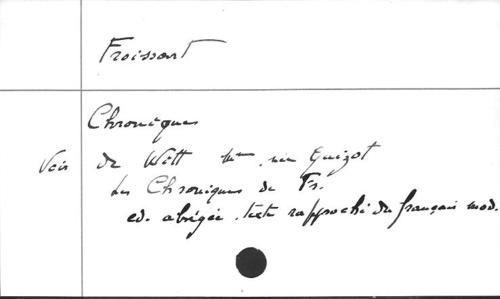 Froissart
Chroniques
Voir de Witt Mme, née Guizot
Les Chroniques de Fr.
ed. abrégée, texte rapproché du français mod.